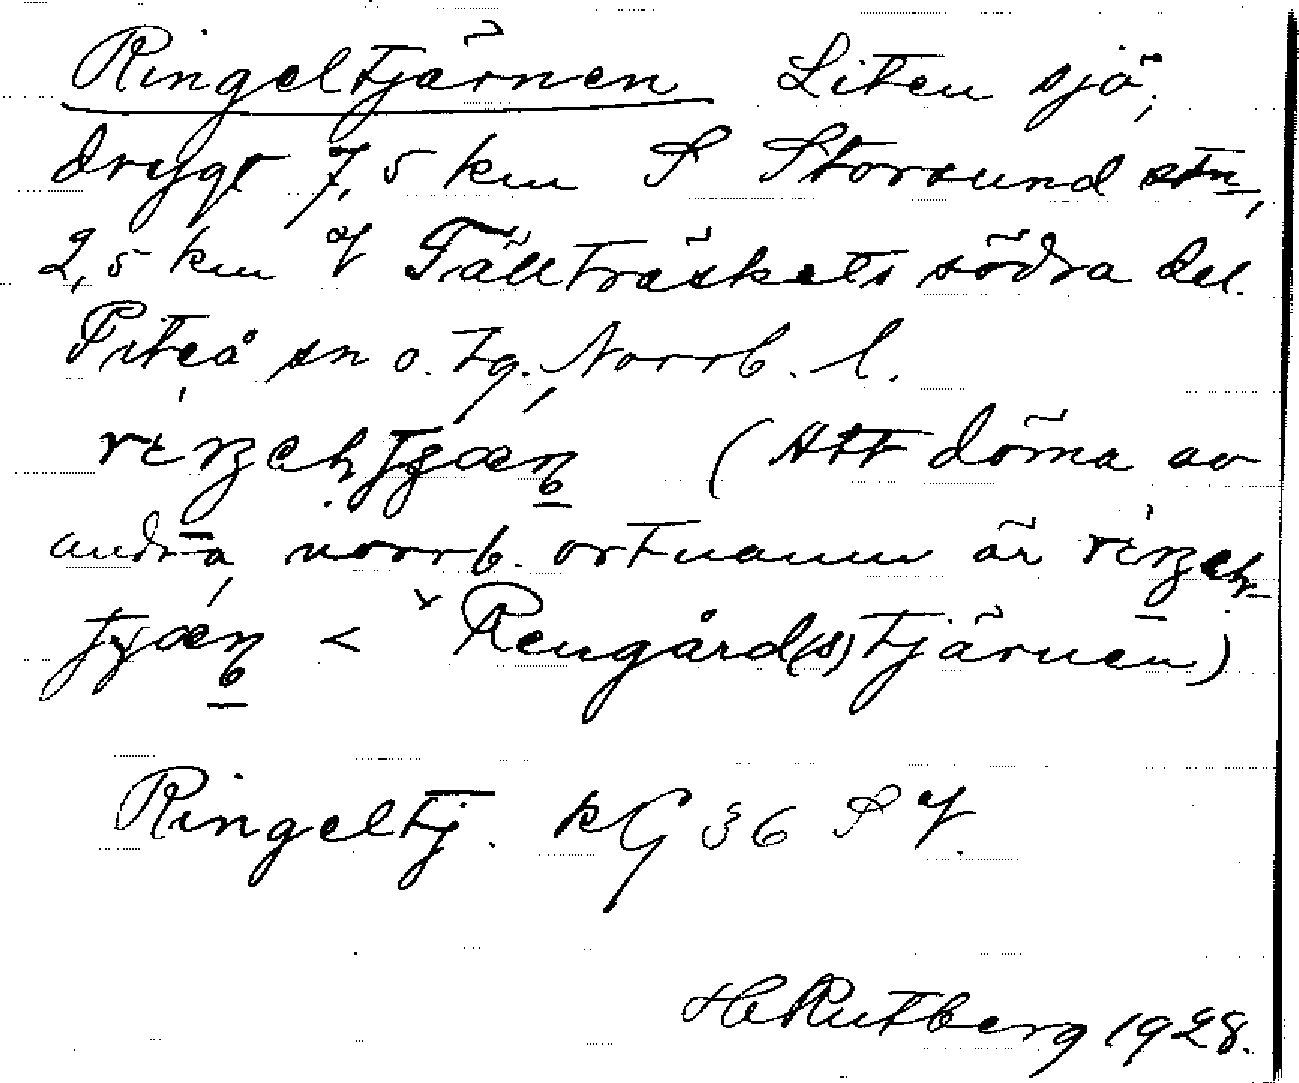 Ringeltjärnen Liten sjö,
drygt 7,5 km S Storsund stn,
2,5 km V Tällträskets södra del.
Piteå sn o. tg, Norrb. l.
(Att döma av
andra norrb. ortnamn är
< Rengård(s)tjärnen)
Ringeltj. kG 36 S V.
H Rutberg 1928.